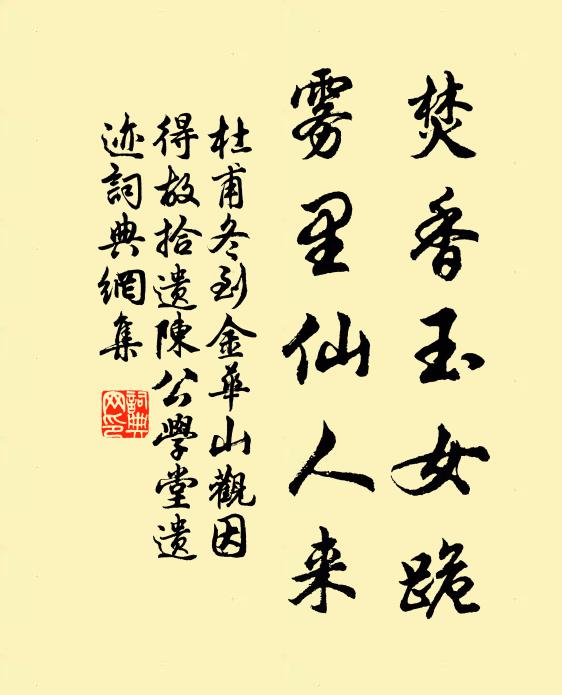 焚香玉女跪
雾里仙人来
杜甫冬到金華山觀因
得故拾遺陳公學堂遺
迹詞典網集
詞典
网印